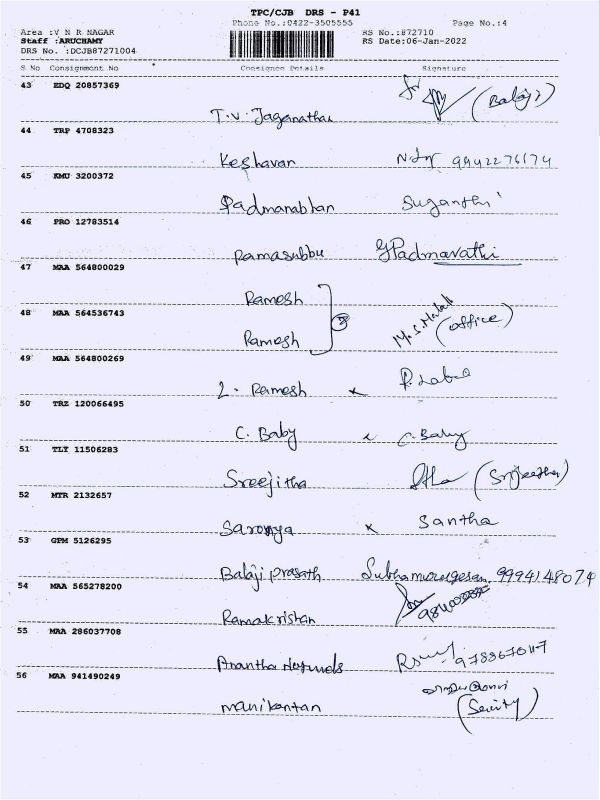 TPC/CJB DRS - P41
Phone No.:0422-3505555 Page No.:4
Area :V N R NAGAR RS No.:872710
Staff :ARUCHAMY RS Date:06-Jan-2022
DRS No. :DCJB87271004
S No Consignment No Consignee Details Signature
43 EDQ 20857369
T.V. Jaganathan (Balaji)
44 TRP 4708323
Keshavan 9942276174
45 KMU 3200372
Padmanabhan Suganthi
46 PRO 12783514
Ramasubbu G Padmavathi
47 MAA 564800029
Ramesh
48 MAA 564536743
Ramesh (office)
49 MAA 564800269
L. Ramesh x
50 TRZ 120066495
C. Baby C. Baby
51 TLY 11506283
Sreejitha
52 MTR 2132657
Saranya x Santha
53 GPM 5126295
Balaji prasath Subhamurugesan 9994148074
54 MAA 565278200
Ramakrishan
55 MAA 286037708
Anantha
56 MAA 941490249
manikantan (Security)